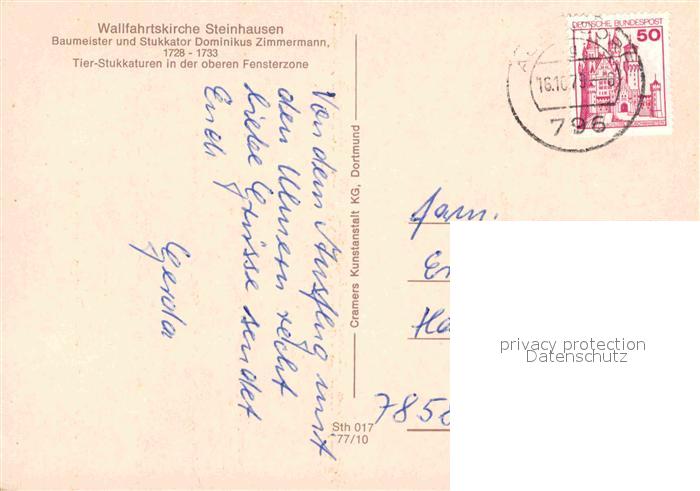 Wallfahrtskirche Steinhausen
Baumeister und Stukkator Dominikus Zimmermann,
1728 - 1733
Tier-Stukkaturen in der oberen Fensterzone
DEUTSCHE BUNDESPOST
50
16.10.79
796
Von dem Ausflug mit
den Ulmern recht
liebe Grüsse sendet
Euch
Gerda
Cramers Kunstanstalt KG, Dortmund
Sth 017
77/10
Fam.
785
privacy protection
Datenschutz